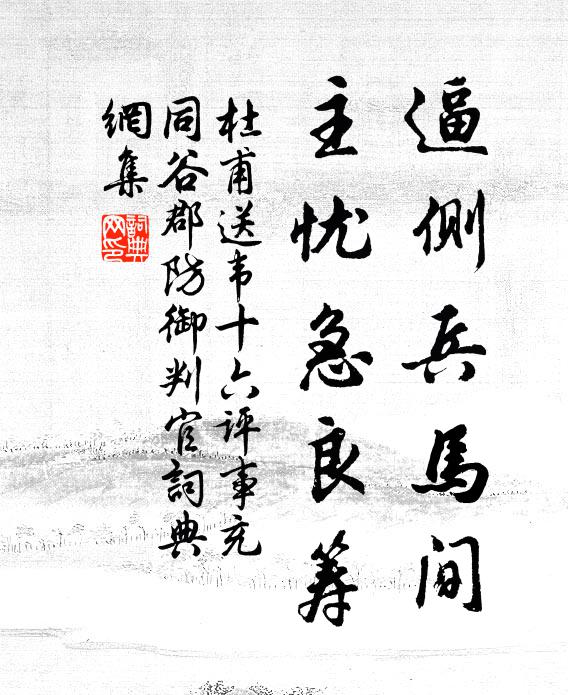 逼侧兵馬间
主忧急良筹
杜甫送韦十六评事充
同谷郡防御判官詞典
網集
詞典
网印